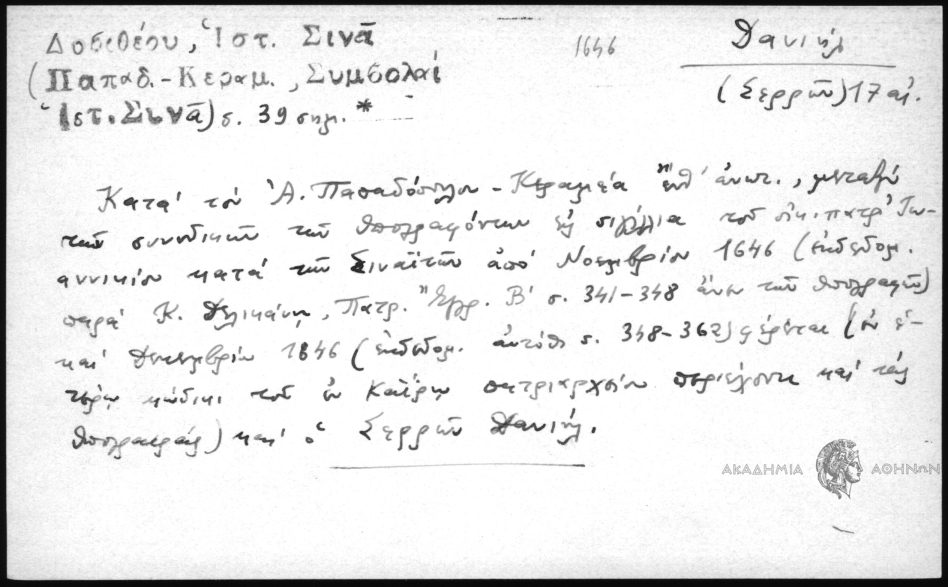 Δοσιθέου, Ἱστ. Σινᾶ
(Παπαδ.-Κεραμ., Συμβολαί
Ἱστ. Σινᾶ) σ. 39 σημ. *
1646
Δανιήλ
(Σερρῶν) 17 αἰ.
Κατά τόν Ἀ. Παπαδόπουλον-Κεραμέα ἔνθ' ἀνωτ., μεταξύ
τῶν συνοδικῶν τῶν ὑπογραφόντων εἰς σιγίλλια τοῦ οἰκ. πατρ. Ἰω-
αννικίου κατά τῶν Σιναϊτῶν ἀπό Νοεμβρίου 1646 (ἐκδεδομ.
παρά Κ. Δελικάνῃ, Πατρ. Ἔγγρ. Β' σ. 341-348 ἄνευ τῶν ὑπογραφῶν)
καί Δεκεμβρίου 1646 (ἐκδεδομ. αὐτόθι σ. 348-362) φέρεται (ἐν ἑ-
τέρῳ κώδικι τοῦ ἐν Καΐρῳ πατριαρχείου περιέχοντι καί τάς
ὑπογραφάς) καί ὁ Σερρῶν Δανιήλ.
ΑΚΑΔΗΜΙΑ ΑΘΗΝΩΝ